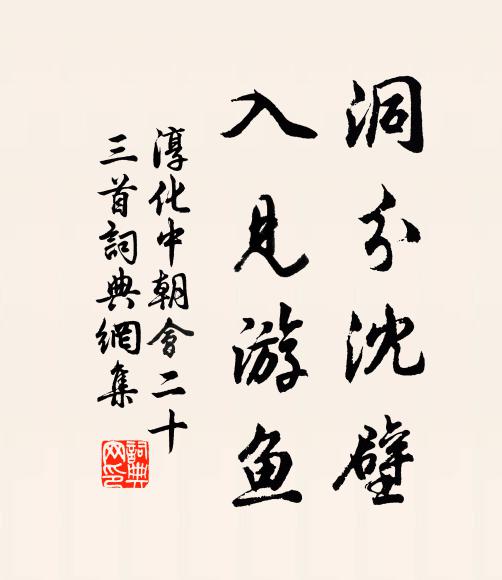 洞分沈璧
入見游魚
淳化中朝會二十
三首詞典網集
詞典
网印